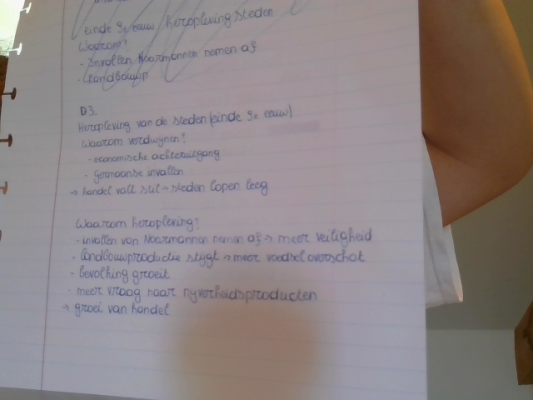 einde 9e eeuw heropleving steden
Waarom?
- Invallen Noormannen nemen af
- Landbouw
D3.
Heropleving van de steden (einde 9e eeuw)
Waarom verdwijnen?
- economische achteruitgang
- Germaanse invallen
→ handel valt stil → steden lopen leeg
Waarom heropleving?
- invallen van Noormannen nemen af → meer veiligheid
- landbouwproductie stijgt → meer voedseloverschot
- bevolking groeit
- meer vraag naar nijverheidsproducten
→ groei van handel